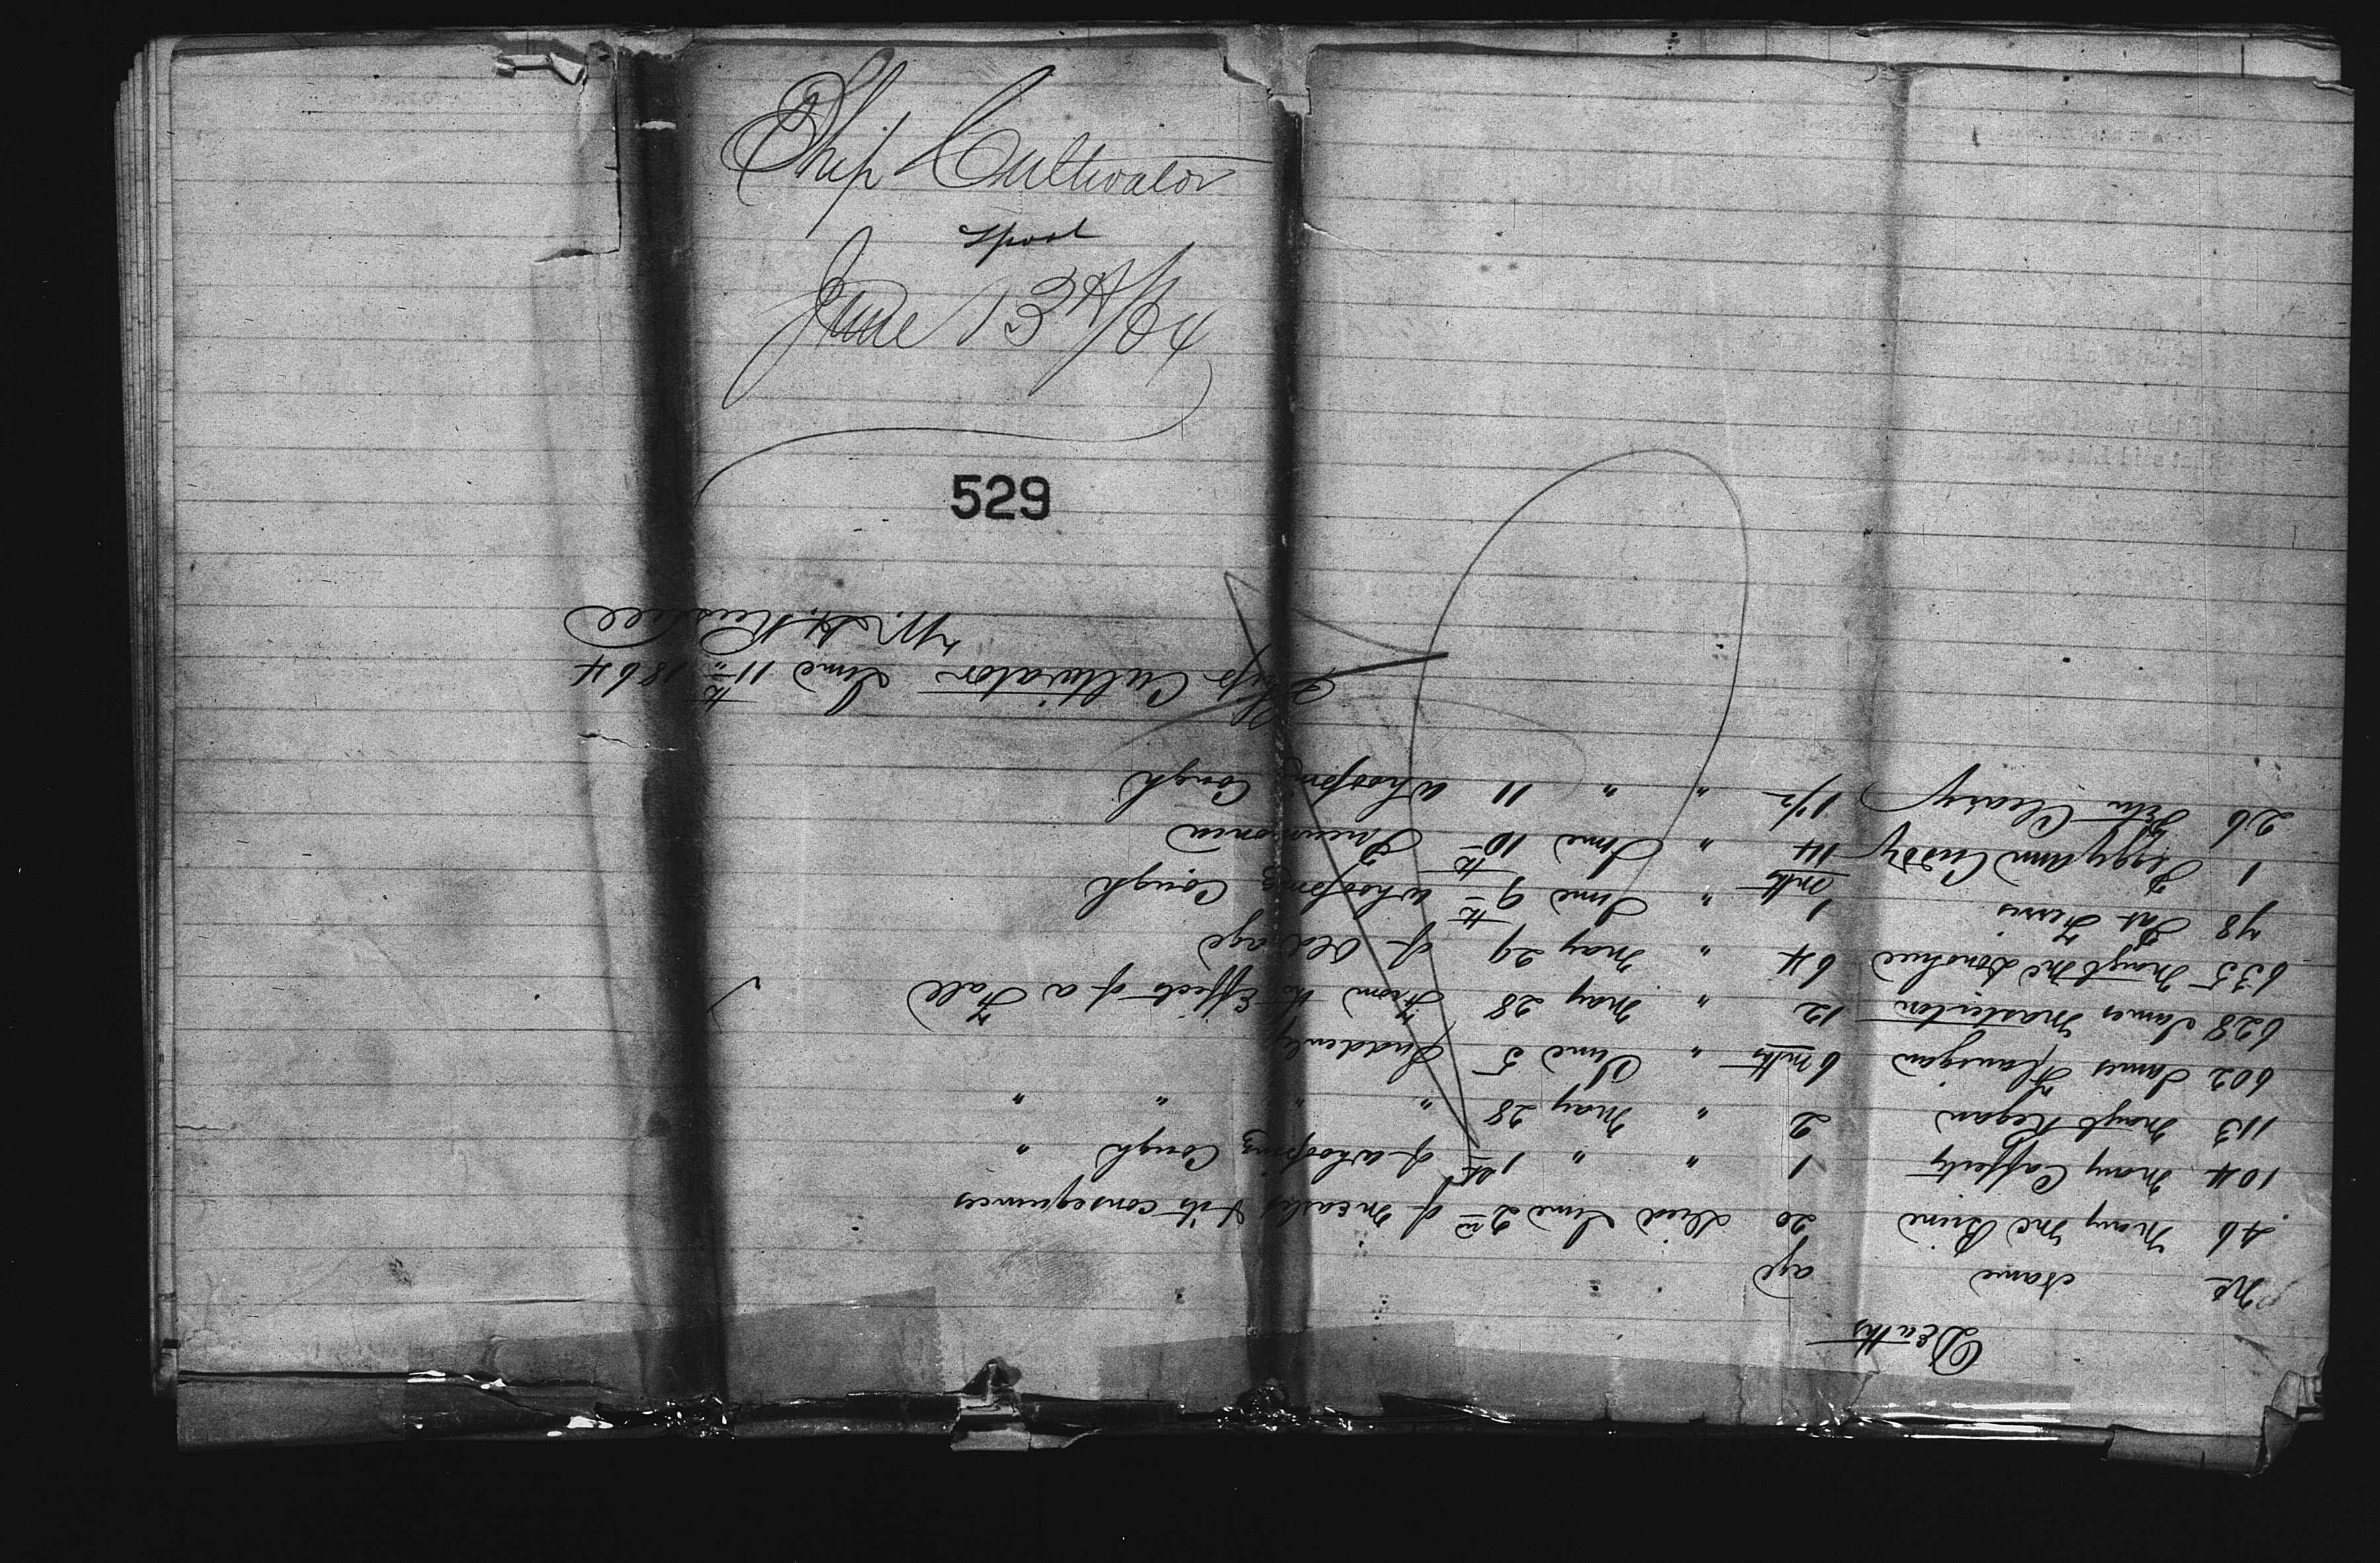 Ship Cultivator
Lpool
June 13th/64
529
Deaths
No Name age
46 Mary Mc Bine 20 died June 2nd of Measles & its consequences
104 Mary Cafferty 1 " " 1st of whooping Cough "
113 Margt Regan 2 " May 28 " " " "
602 James Flanigan 6 mths " June 5 Suddenly
628 James Masterton 12 " May 28 From the Effects of a Fall
635 Margt Mc Donohue 64 " May 29 of Old age
78 Pat Ferris 1 mths " June 9th whooping Cough
1 Peggy Ann Cuddy 14 " June 10th Pneumonia
26 John Cleary 1 1/2 " " 11 whooping Cough
Ship Cultivator June 11th 1864
W. H. Russell